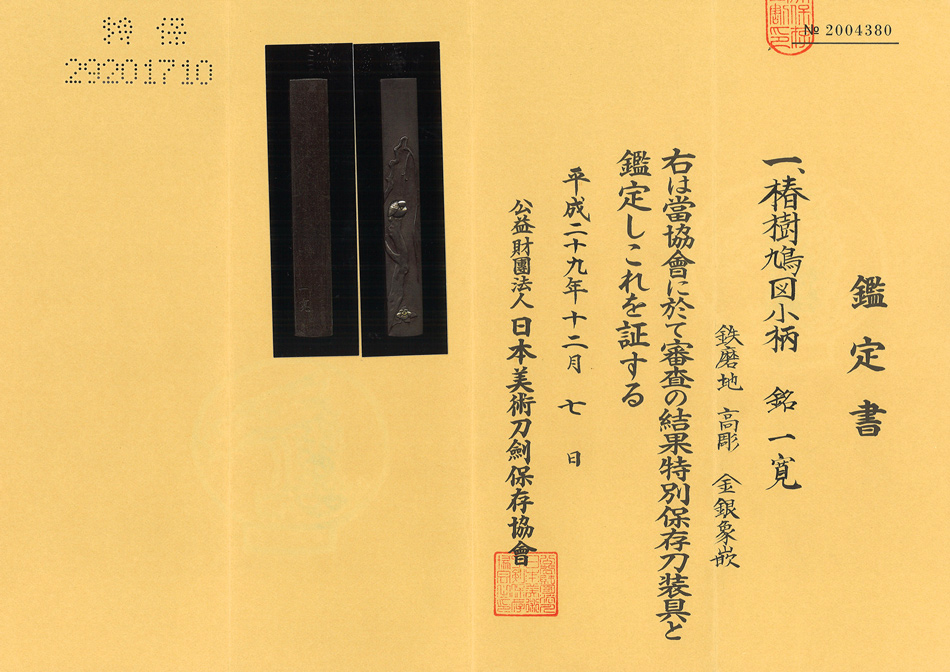 鑑定書
一、椿樹鳩図小柄　銘　一寛
鉄磨地　高彫　金銀象嵌
右は當協會に於て審査の結果特別保存刀装具と
鑑定しこれを証する
平成二十九年十二月七日
公益財團法人 日本美術刀劍保存協會
№ 2004380
特保
29201710